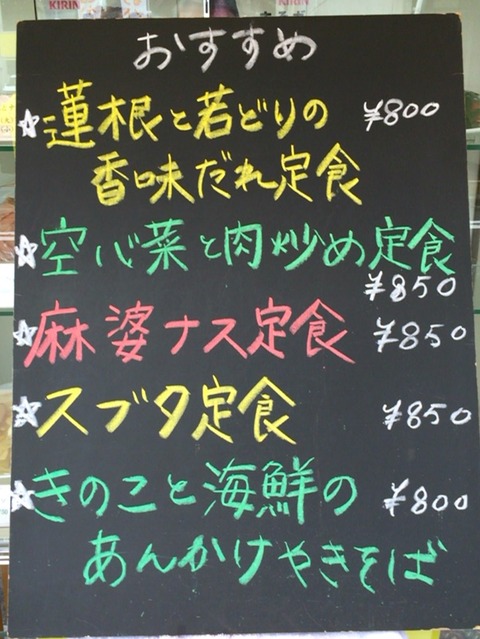 KIRIN
KIRIN
おすすめ
☆蓮根と若どりの ¥800
香味だれ定食
☆空心菜と肉炒め定食
¥850
☆麻婆ナス定食 ¥850
☆スブタ定食 ¥850
☆きのこと海鮮の ¥800
あんかけやきそば